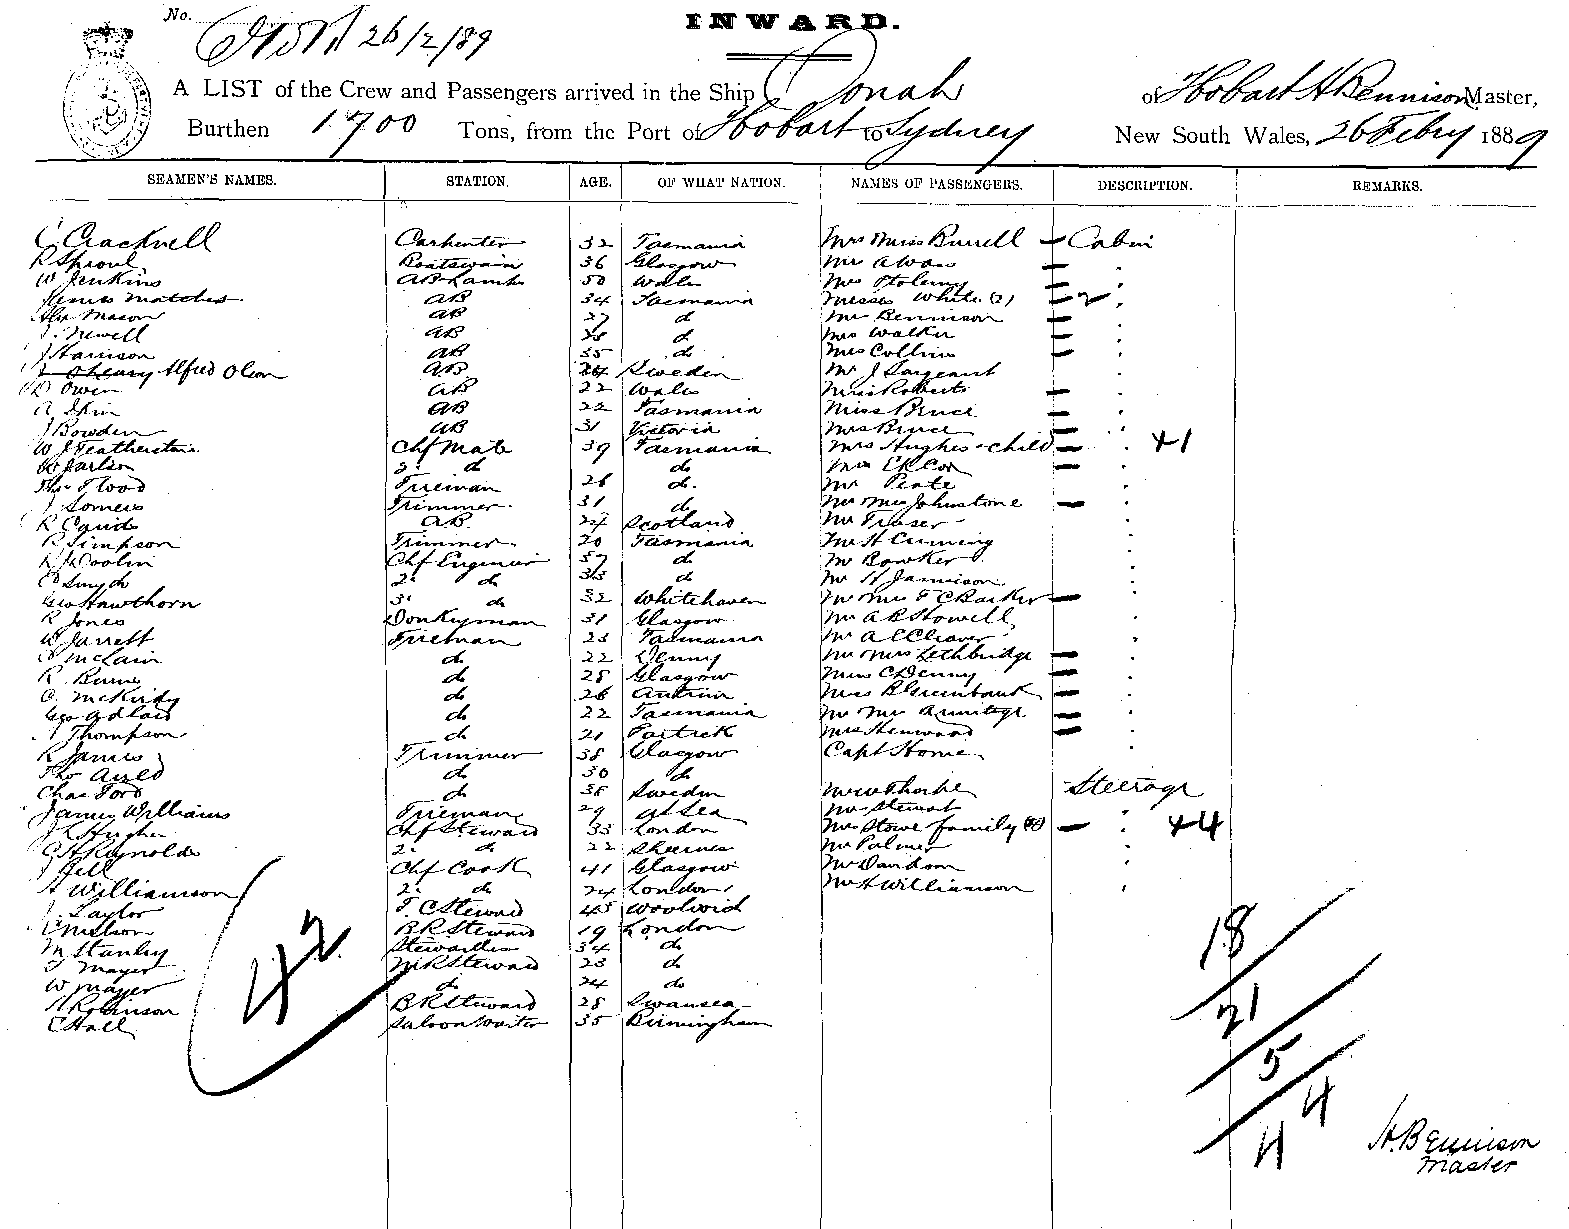 No.
26/2/89
INWARD.
A LIST of the Crew and Passengers arrived in the Ship Oonah of Hobart H Bennison Master,
Burthen 1700 Tons, from the Port of Hobart to Sydney New South Wales, 26 Febry 1889
SEAMEN'S NAMES. STATION. AGE. OF WHAT NATION. NAMES OF PASSENGERS. DESCRIPTION. REMARKS.
C Cracknell Carpenter 32 Tasmania Mrs Miss Burrell — Cabin
R Sproul Boatswain 36 Glasgow Mrs —
W Jenkins AB Lamps 50 Wales Mrs Ptolemy —
James Matches AB 34 Tasmania Misses White (2) — 2
Alex Mason AB 27 d Mrs Bennison —
J. Newell AB d Mrs Walker —
J Harrison AB 35 d Mrs Collins —
Alfred Olson AB 24 Sweden Mr J Sargeant
Owen AB 22 Wales Miss Roberts —
A AB 22 Tasmania Miss Bruce —
J Bowden AB 31 Victoria Mrs Bruce —
W J Featherstone Chf Mate 39 Tasmania Mrs Hughes & child — +1
2 d do —
Thos Flood Fireman 26 do. Mr Peate
J Somers Trimmer 31 do Mr Mrs Johnstone —
R Caird AB 24 Scotland Mr Fraser
R Simpson Trimmer 20 Tasmania Mr H Cumming
Chf Engineer 57 do Mr Bowker
C Smyth 2 do do Mr H Jamieson
Geo Hawthorn 3 do 32 Whitehaven Mr Mrs F C Barker —
R Jones Donkeyman 31 Glasgow Mr A R Stowell
W Jarrett Fireman 23 Tasmania Mr A C Cleaver
McLain do 22 Denny Mr Mrs Lethbridge —
R Burns do 28 Glasgow Miss C Denny —
C. McKirdy do 26 Antrim Miss B Greenbank —
Geo Adlard do 22 Tasmania Mr Mrs Armitage —
A Thompson do 21 Partick Mrs Henwood —
R James Trimmer 38 Glasgow Capt Home
Thos Auld do 30 do
Chas Ford do 38 Sweden Thorpe Steerage
James Williams Fireman 29 At Sea Mr Stewart
J E Hughes Chf Steward 33 London Mrs Stowe family — +4
G H Reynolds 2 do 22 Sheerness Mr Palmer
J Hell Chf Cook 41 Glasgow Mr Davidson
H Williamson 2 do 24 London Mr H Williamson
J. Taylor F. C Steward 45 Woolwich
C Nielson B R Steward 19 London
M Stanley Stewardess 34 do
J Mayer M R Steward 23 do
W Mayer do 24 do
H Robinson B R Steward 28 Swansea
C Hall Saloon Waiter 35 Birmingham
42
18
21
5
4
44
H. Bennison
Master